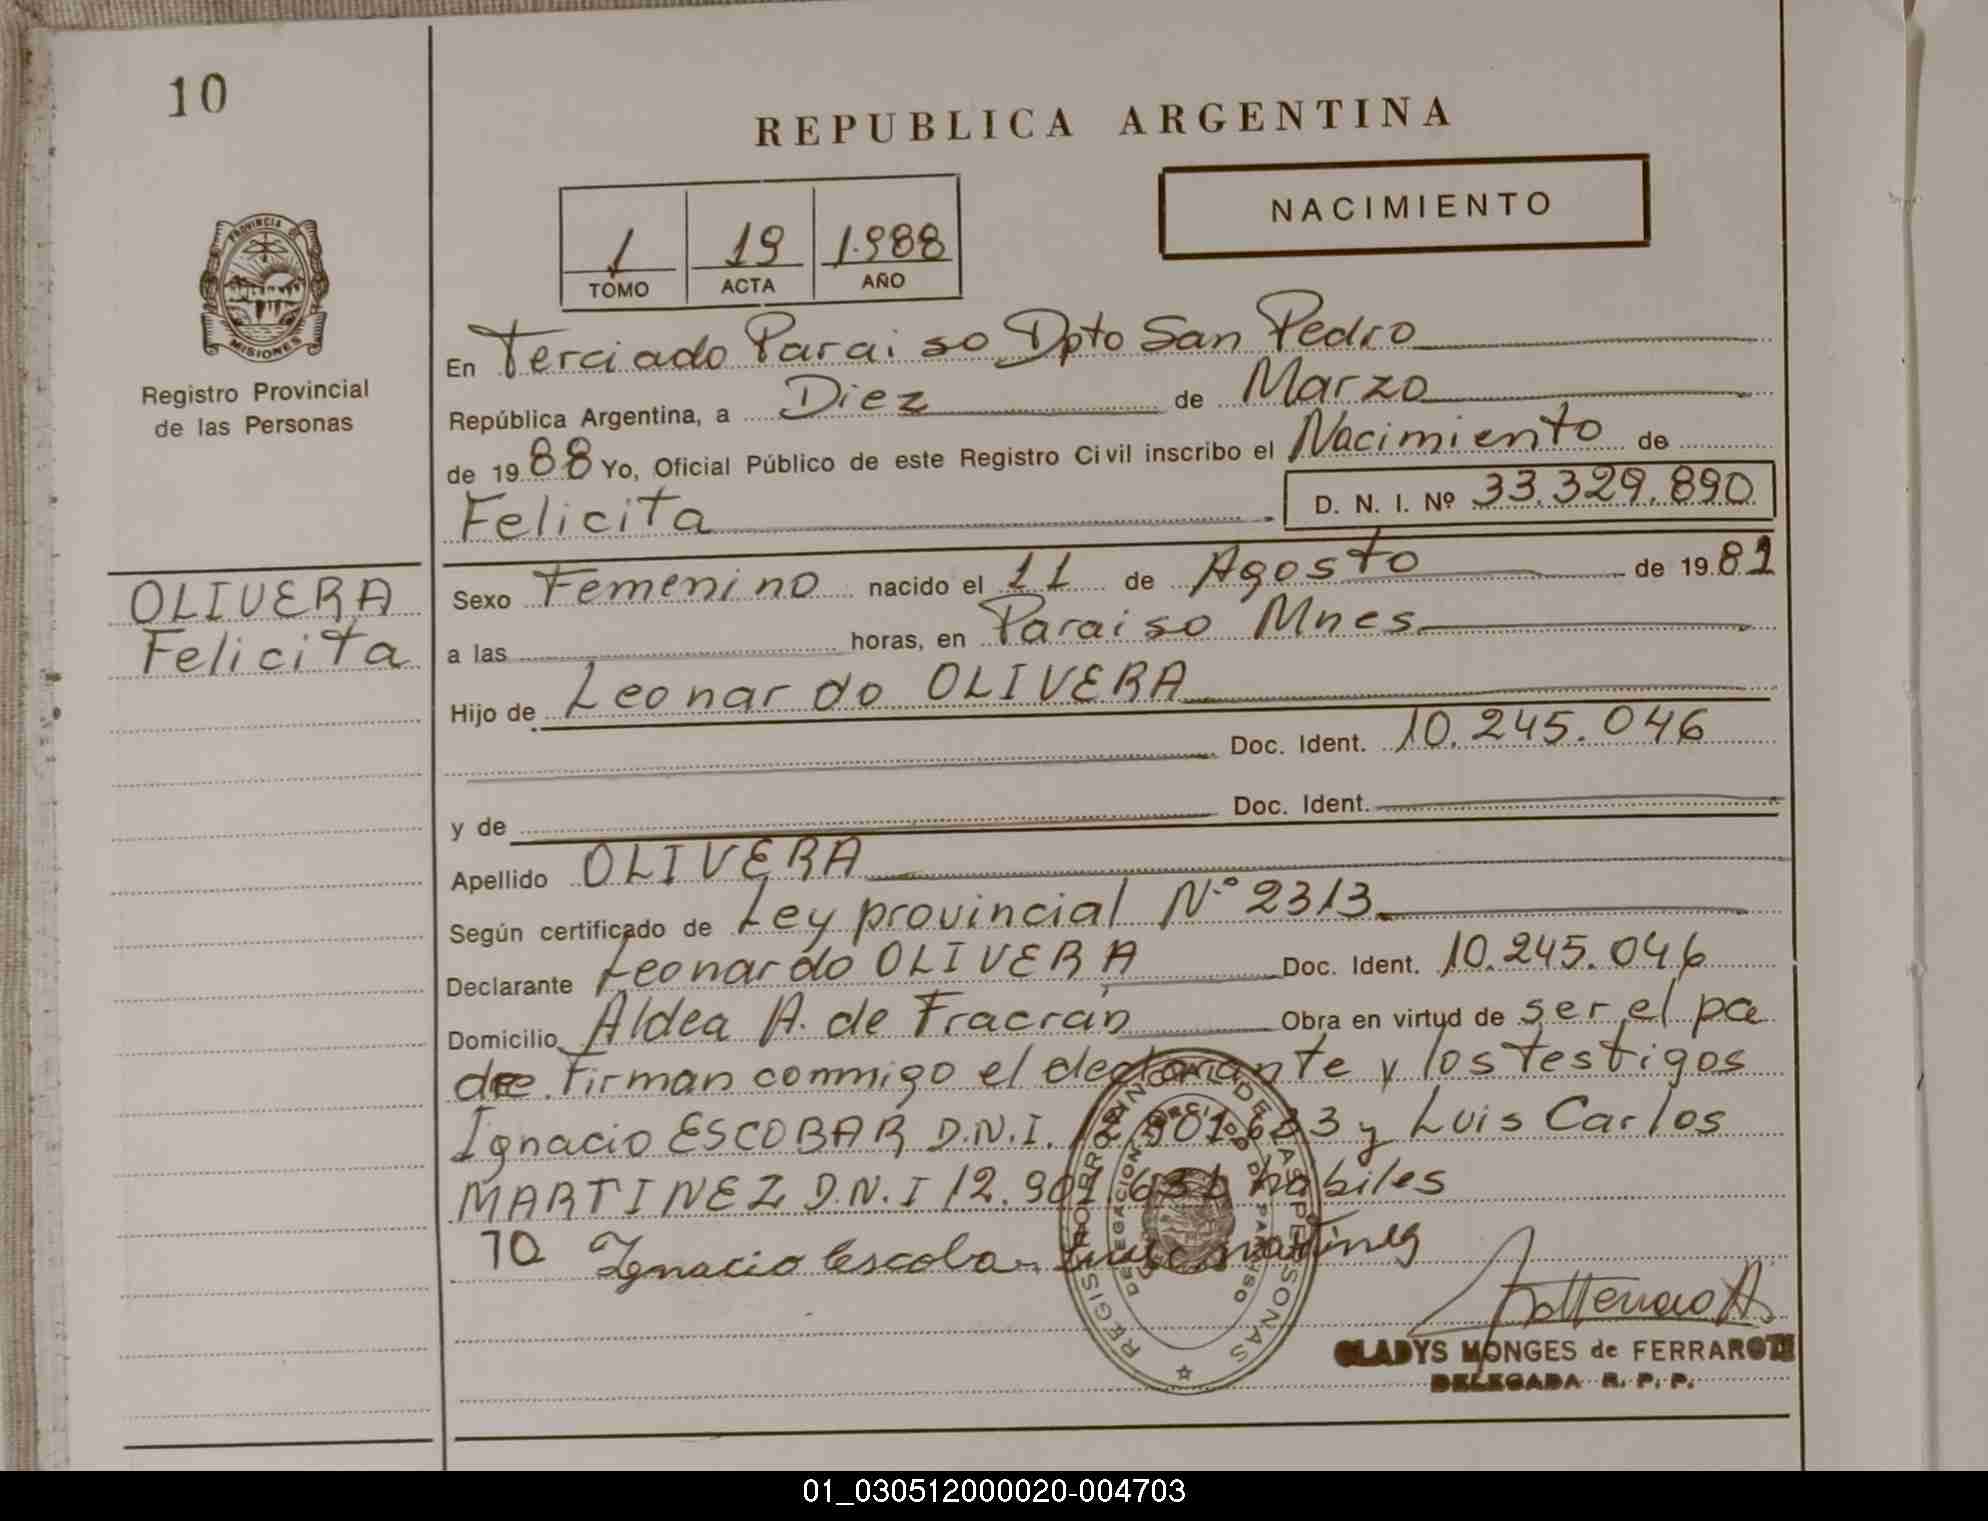 10
REPUBLICA ARGENTINA
NACIMIENTO
1 19 1.988
TOMO ACTA AÑO
PROVINCIA DE
MISIONES
Registro Provincial
de las Personas
En Terciado Paraiso Dpto San Pedro
República Argentina, a Diez de Marzo
de 1988 Yo, Oficial Público de este Registro Civil inscribo el Nacimiento de
Felicita D. N. I. Nº 33.329.890
OLIVERA
Felicita
Sexo Femenino nacido el 11 de Agosto de 1982
a las horas, en Paraiso Mnes
Hijo de Leonardo OLIVERA
Doc. Ident. 10.245.046
y de Doc. Ident.
Apellido OLIVERA
Según certificado de Ley provincial Nº 2313
Declarante Leonardo OLIVERA Doc. Ident. 10.245.046
Domicilio Aldea A. de Fracrán Obra en virtud de ser el pa
dre. Firman conmigo el declarante y los testigos
Ignacio ESCOBAR D.N.I. 12.901.623 y Luis Carlos
MARTINEZ D.N.I 12.901.631 habiles
Ignacio Escobar Luis Martinez
REGISTRO PROVINCIAL DE LAS PERSONAS
DELEGACION TERCIADO PARAISO
GLADYS MONGES de FERRAROTTI
DELEGADA R. P. P.
01_030512000020-004703